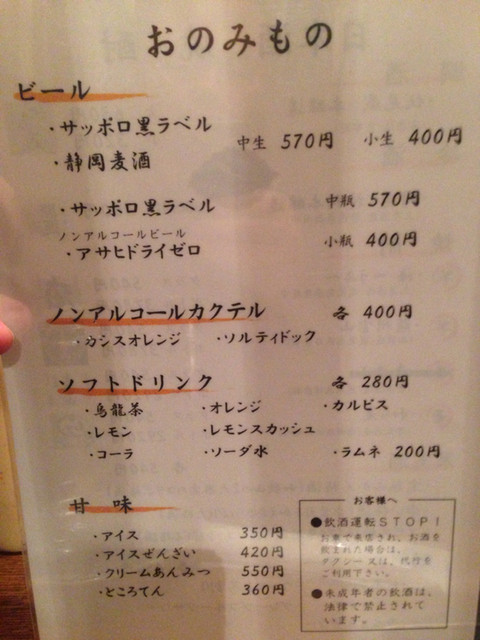 おのみもの
ビール
・サッポロ黒ラベル
・静岡麦酒
中生 570円 小生 400円
・サッポロ黒ラベル 中瓶 570円
ノンアルコールビール
・アサヒドライゼロ 小瓶 400円
ノンアルコールカクテル 各 400円
・カシスオレンジ ・ソルティドック
ソフトドリンク 各 280円
・烏龍茶 ・オレンジ ・カルピス
・レモン ・レモンスカッシュ
・コーラ ・ソーダ水 ・ラムネ 200円
甘味
・アイス 350円
・アイスぜんざい 420円
・クリームあんみつ 550円
・ところてん 360円
お客様へ
●飲酒運転STOP!
お車で来店され、お酒を
飲まれた場合は、
タクシー又は、代行を
ご利用下さい。
●未成年者の飲酒は、
法律で禁止されて
います。